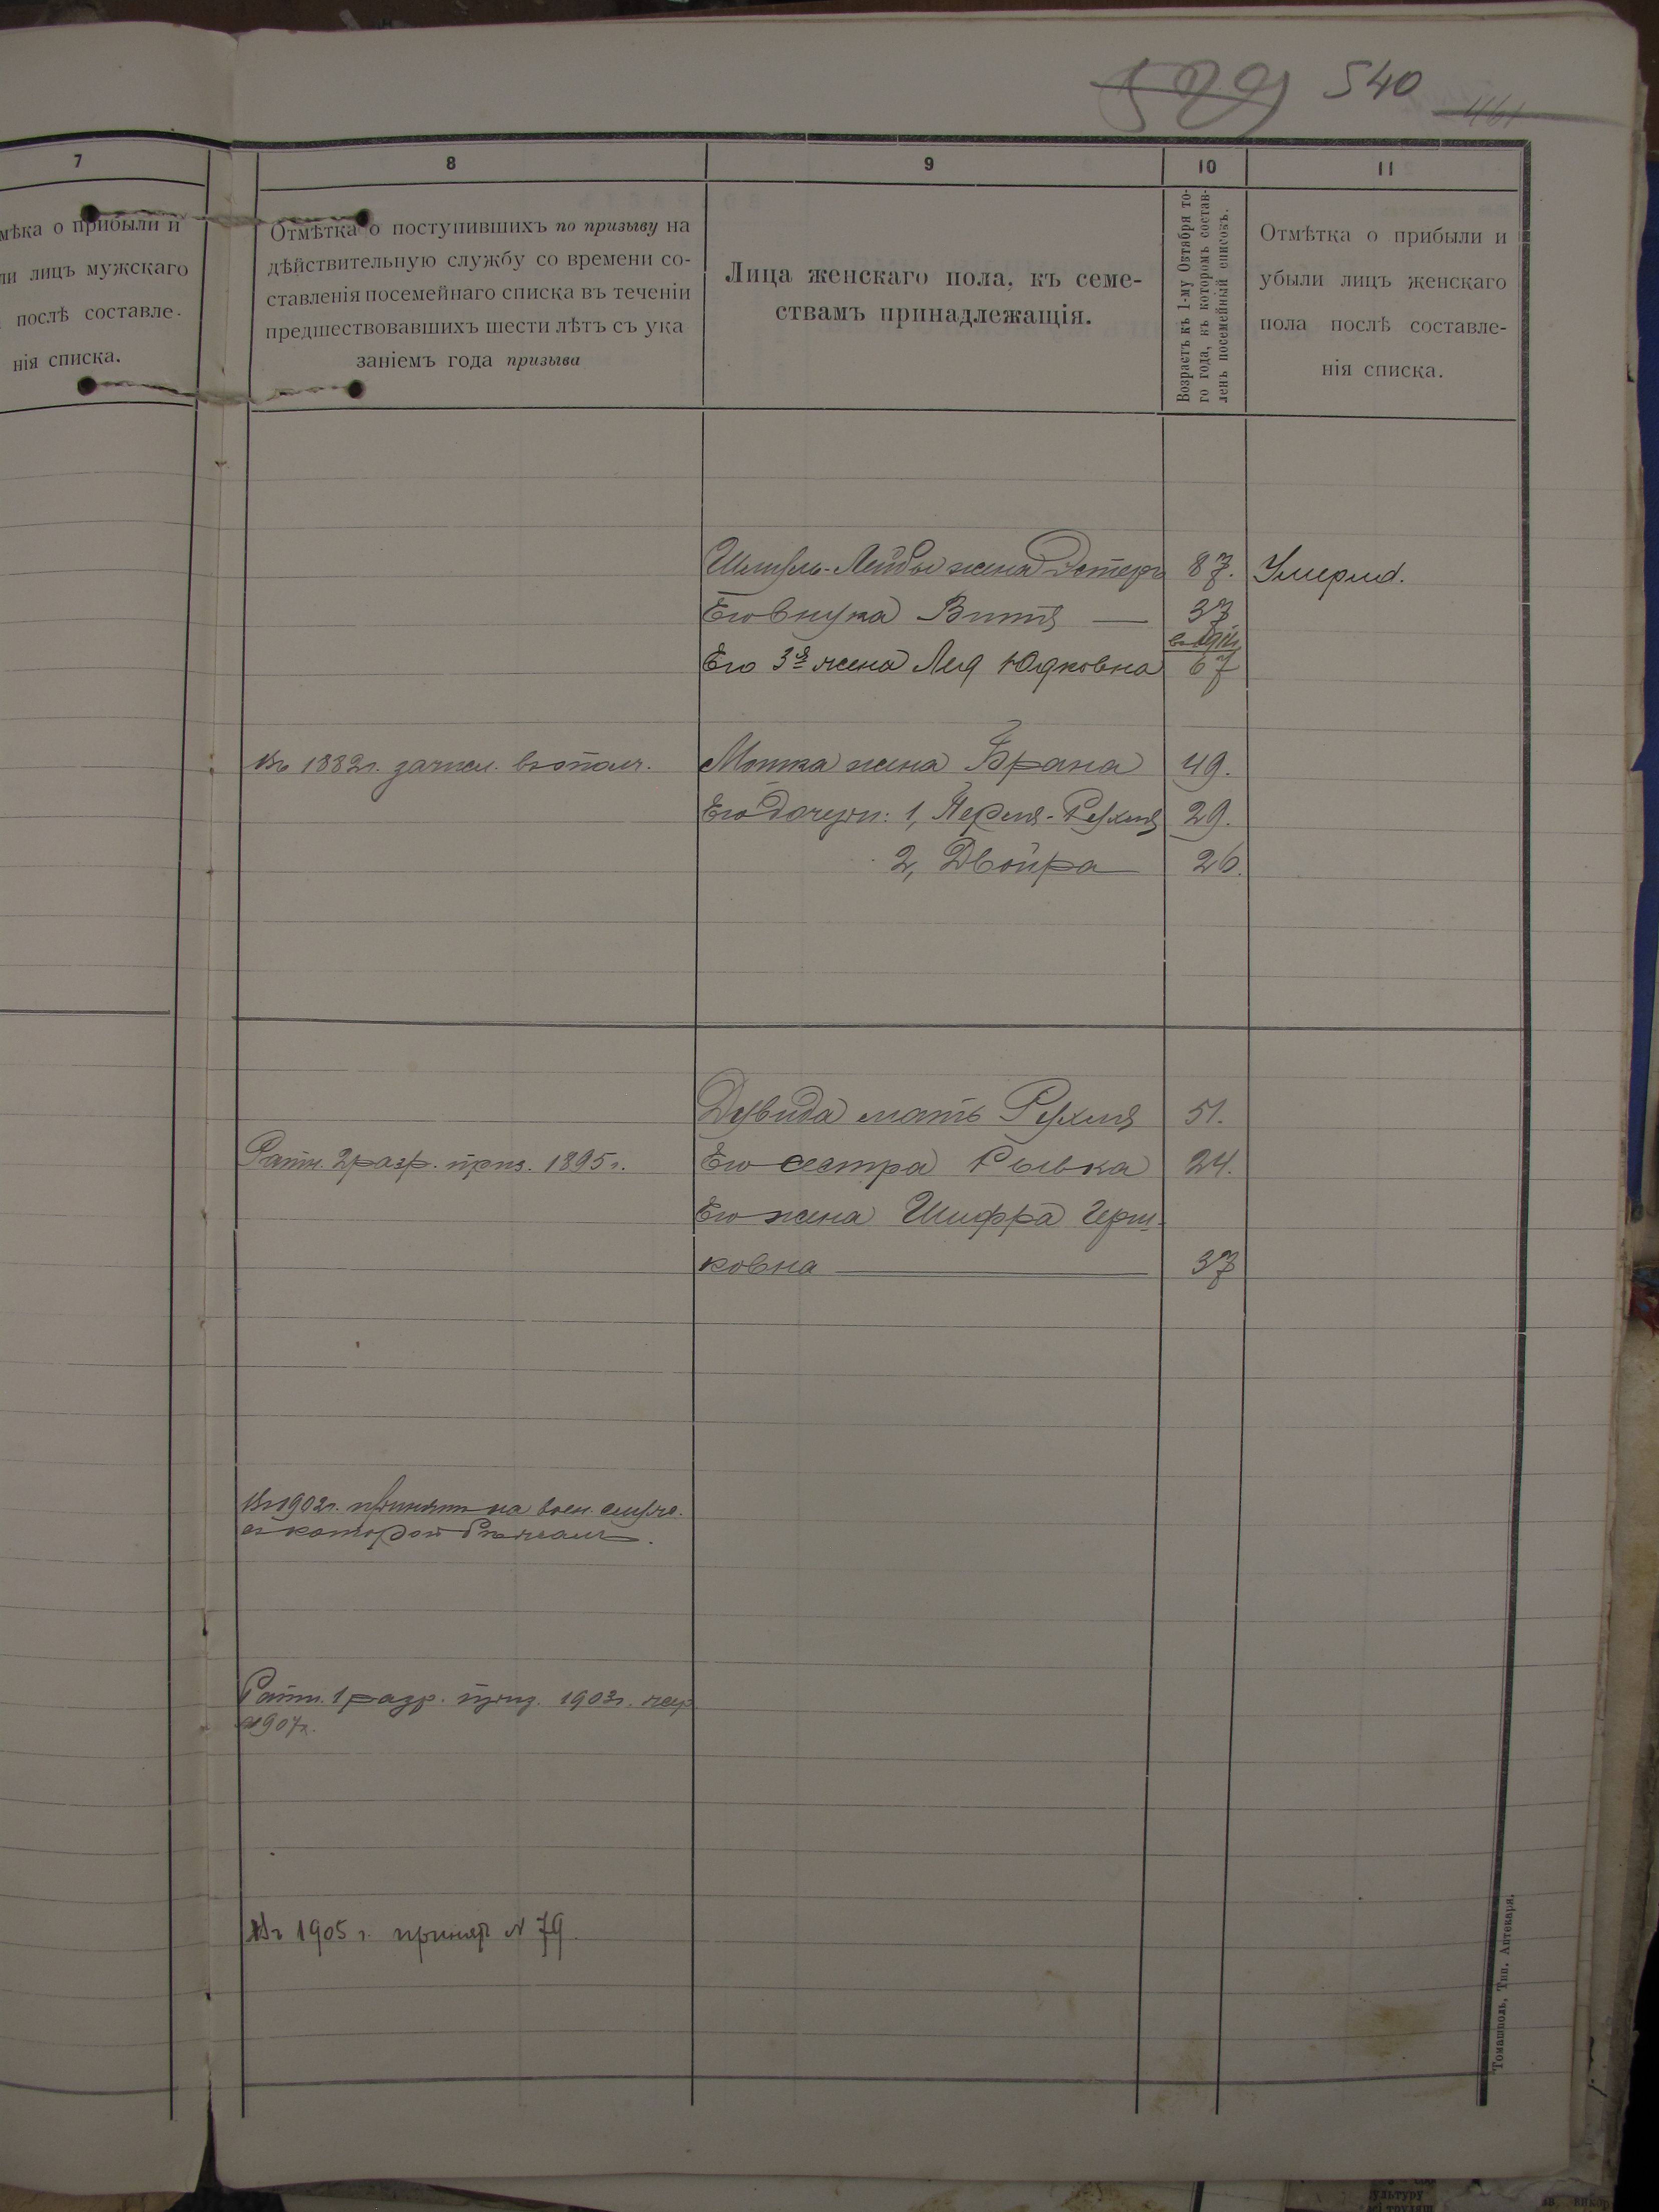 529 540
461
7
8
9
10
11
мѣка о прибыли и
ли лицъ мужскаго
послѣ составле-
нія списка.
Отмѣтка о поступившихъ по призыву на
дѣйствительную службу со времени со-
ставленія посемейнаго списка въ теченіи
предшествовавшихъ шести лѣтъ съ ука
заніемъ года призыва
Лица женскаго пола, къ семе-
ствамъ принадлежащія.
Возрастъ къ 1-му Октября то-
го года, къ которомъ состав-
ленъ посемейный списокъ.
Отмѣтка о прибыли и
убыли лицъ женскаго
пола послѣ составле-
нія списка.
Шмуль-Лейбы жена Эстеръ 87. Умерла.
Его внука Витя — 37
Его 3я жена Лея Юдковна 67
Въ 1882г. зачисл. въ опалч. Мошка жена Брана 49.
Его дочери: 1, Перля-Рухля 29.
2, Двойра 26.
Дувида мать Рухля 51.
Ратн. 2 разр. приз. 1895г. Его сестра Рывка 24.
Его жена Шифра Герш-
ковна 37
Въ 1902г. принятъ на воен. служ.
съ которой бежалъ.
Ратн. 1 разр. приз. 1903г.
1907г.
Въ 1905 г. принятъ № 79.
Томашполь, Тип. Аптекаря.